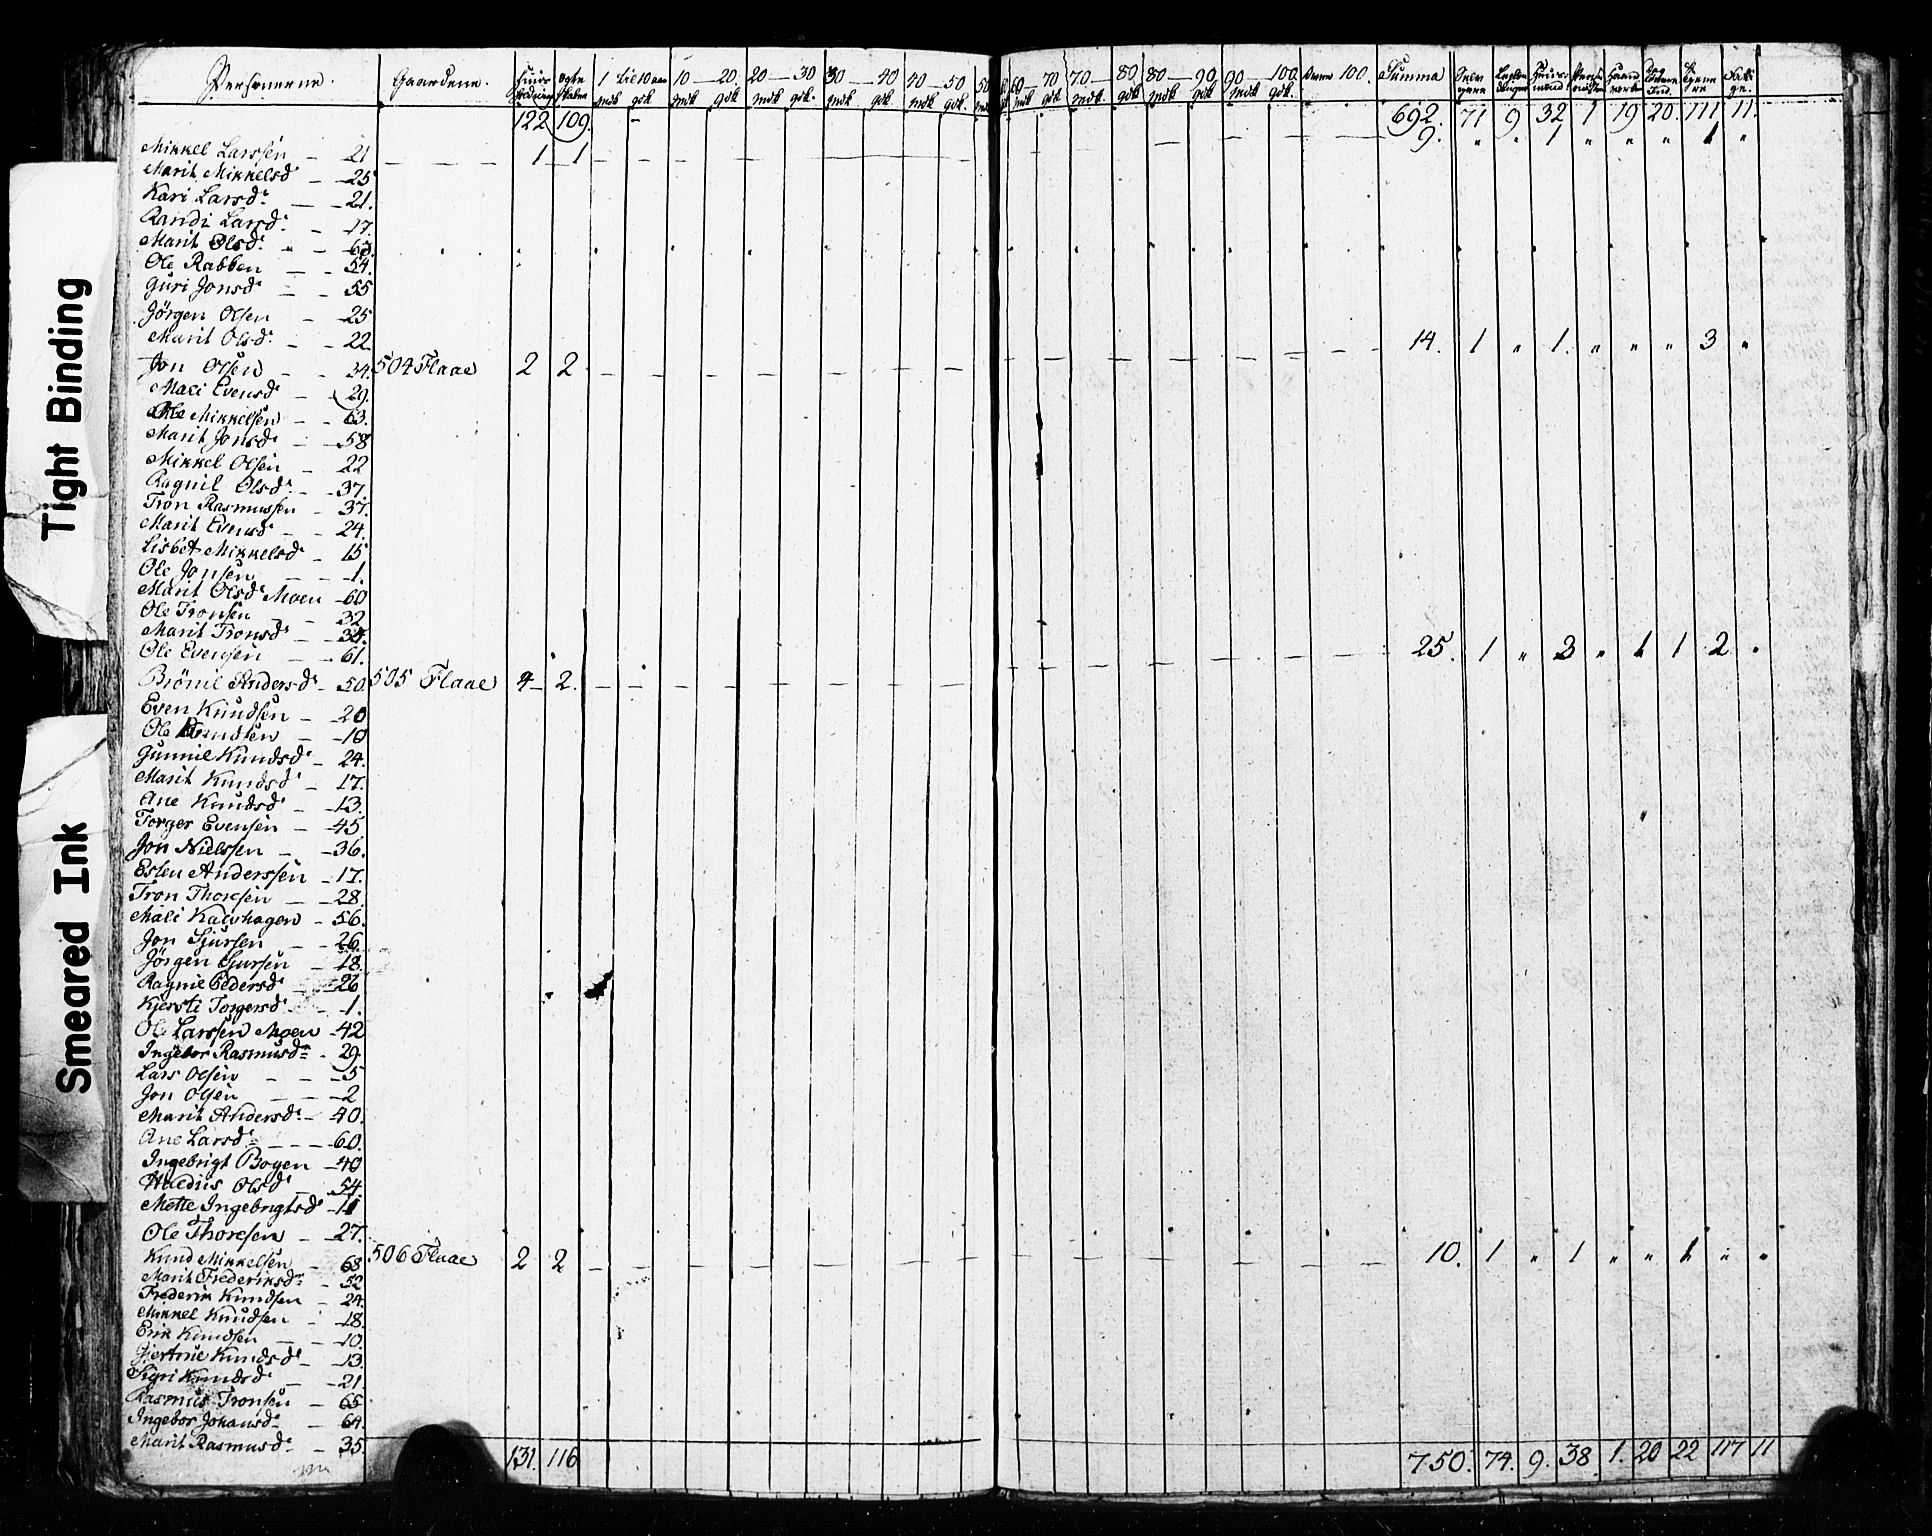 Tight Binding
Smeared Ink
Personerne. Gaardene. Huus 1 til 10 aar 10 — 20 20 — 30 30 — 40 40 — 50 50 60 — 70 70 — 80 80 — 90 90 — 100. over 100. Summa
mdk gdk mdk gdk mdk gdk. mdk gdk mdk gdk. mdk gdk mdk. gdk mdk gdk mdk gdk.
122 109. 692. 71 9 32 1 19 20. 111 11.
Mikkel Larssen — 21 1 1 9. " " 1 " " " 1 "
Marit Mikkelsdr — 25
Kari Larsdr — 21.
Randi Larsdr — 17.
Marit Olsdr — 63.
Ole Rabben — 54.
Guri Jonsdr — 55
Jörgen Olsen — 25
Marit Olsdr — 22.
Jon Olsen — 34. 504 Flaae 2 2 14. 1 " 1. " " " 3 "
Mari Evensd — 29.
Ole Mikkelsen — 63.
Marit Jonsdr — 58
Mikkel Olsen — 22
Ragnil Olsdr — 37.
Tron Rasmussen — 37.
Marit Evensdr — 24.
Lisbet Mikkelsdr — 15
Ole Jonsen — 1.
Marit Olsdr Moen — 60
Ole Tronsen — 32
Marit Tronsdr — 34.
Ole Evensen — 61.
Brönil Andersdr — 50. 505 Flaae 4 — 2. 25. 1 " 3 " 1 1 2 "
Even Knudsen — 20
Ole Knudsen — 10
Gunnil Knudsdr — 24.
Marit Knudsdr — 17.
Ane Knudsdr — 13.
Torger Evensen — 45
Jon Nielssen — 36.
Esten Anderssen — 17.
Tron Thoresen — 28.
Mali Kalvhagen — 56.
Jon Sjursen — 26.
Jörgen Sjursen — 18.
Ragnil Pedersdr — 26
Kjersti Torgersdr — 1.
Ole Larssen Moen — 42
Ingebor Rasmusdr — 29.
Lars Olsen — 5
Jon Olsen — 2
Marit Andersdr — 40.
Ane Larsdr — 60.
Ingebrigt Bogen — 40
Olsdr 54
Mette Ingebrigtsdr — 11
Ole Thoresen — 27.
Knud Mikkelsen — 68 506 Flaae 2 2 10. 1 " 1 " " 1 " "
Marit Frederiksdr — 52
Frederik Knudsen — 24.
Mikkel Knudsen — 18.
Erik Knudsen — 10.
Gjertrue Knudsdr — 13.
Sigri Knudsdr — 21
Rasmus Tronsen — 65
Ingebor Johansdr — 64.
Marit Rasmusdr — 35.
131. 116 750. 74. 9. 38. 1. 20 22 117 11